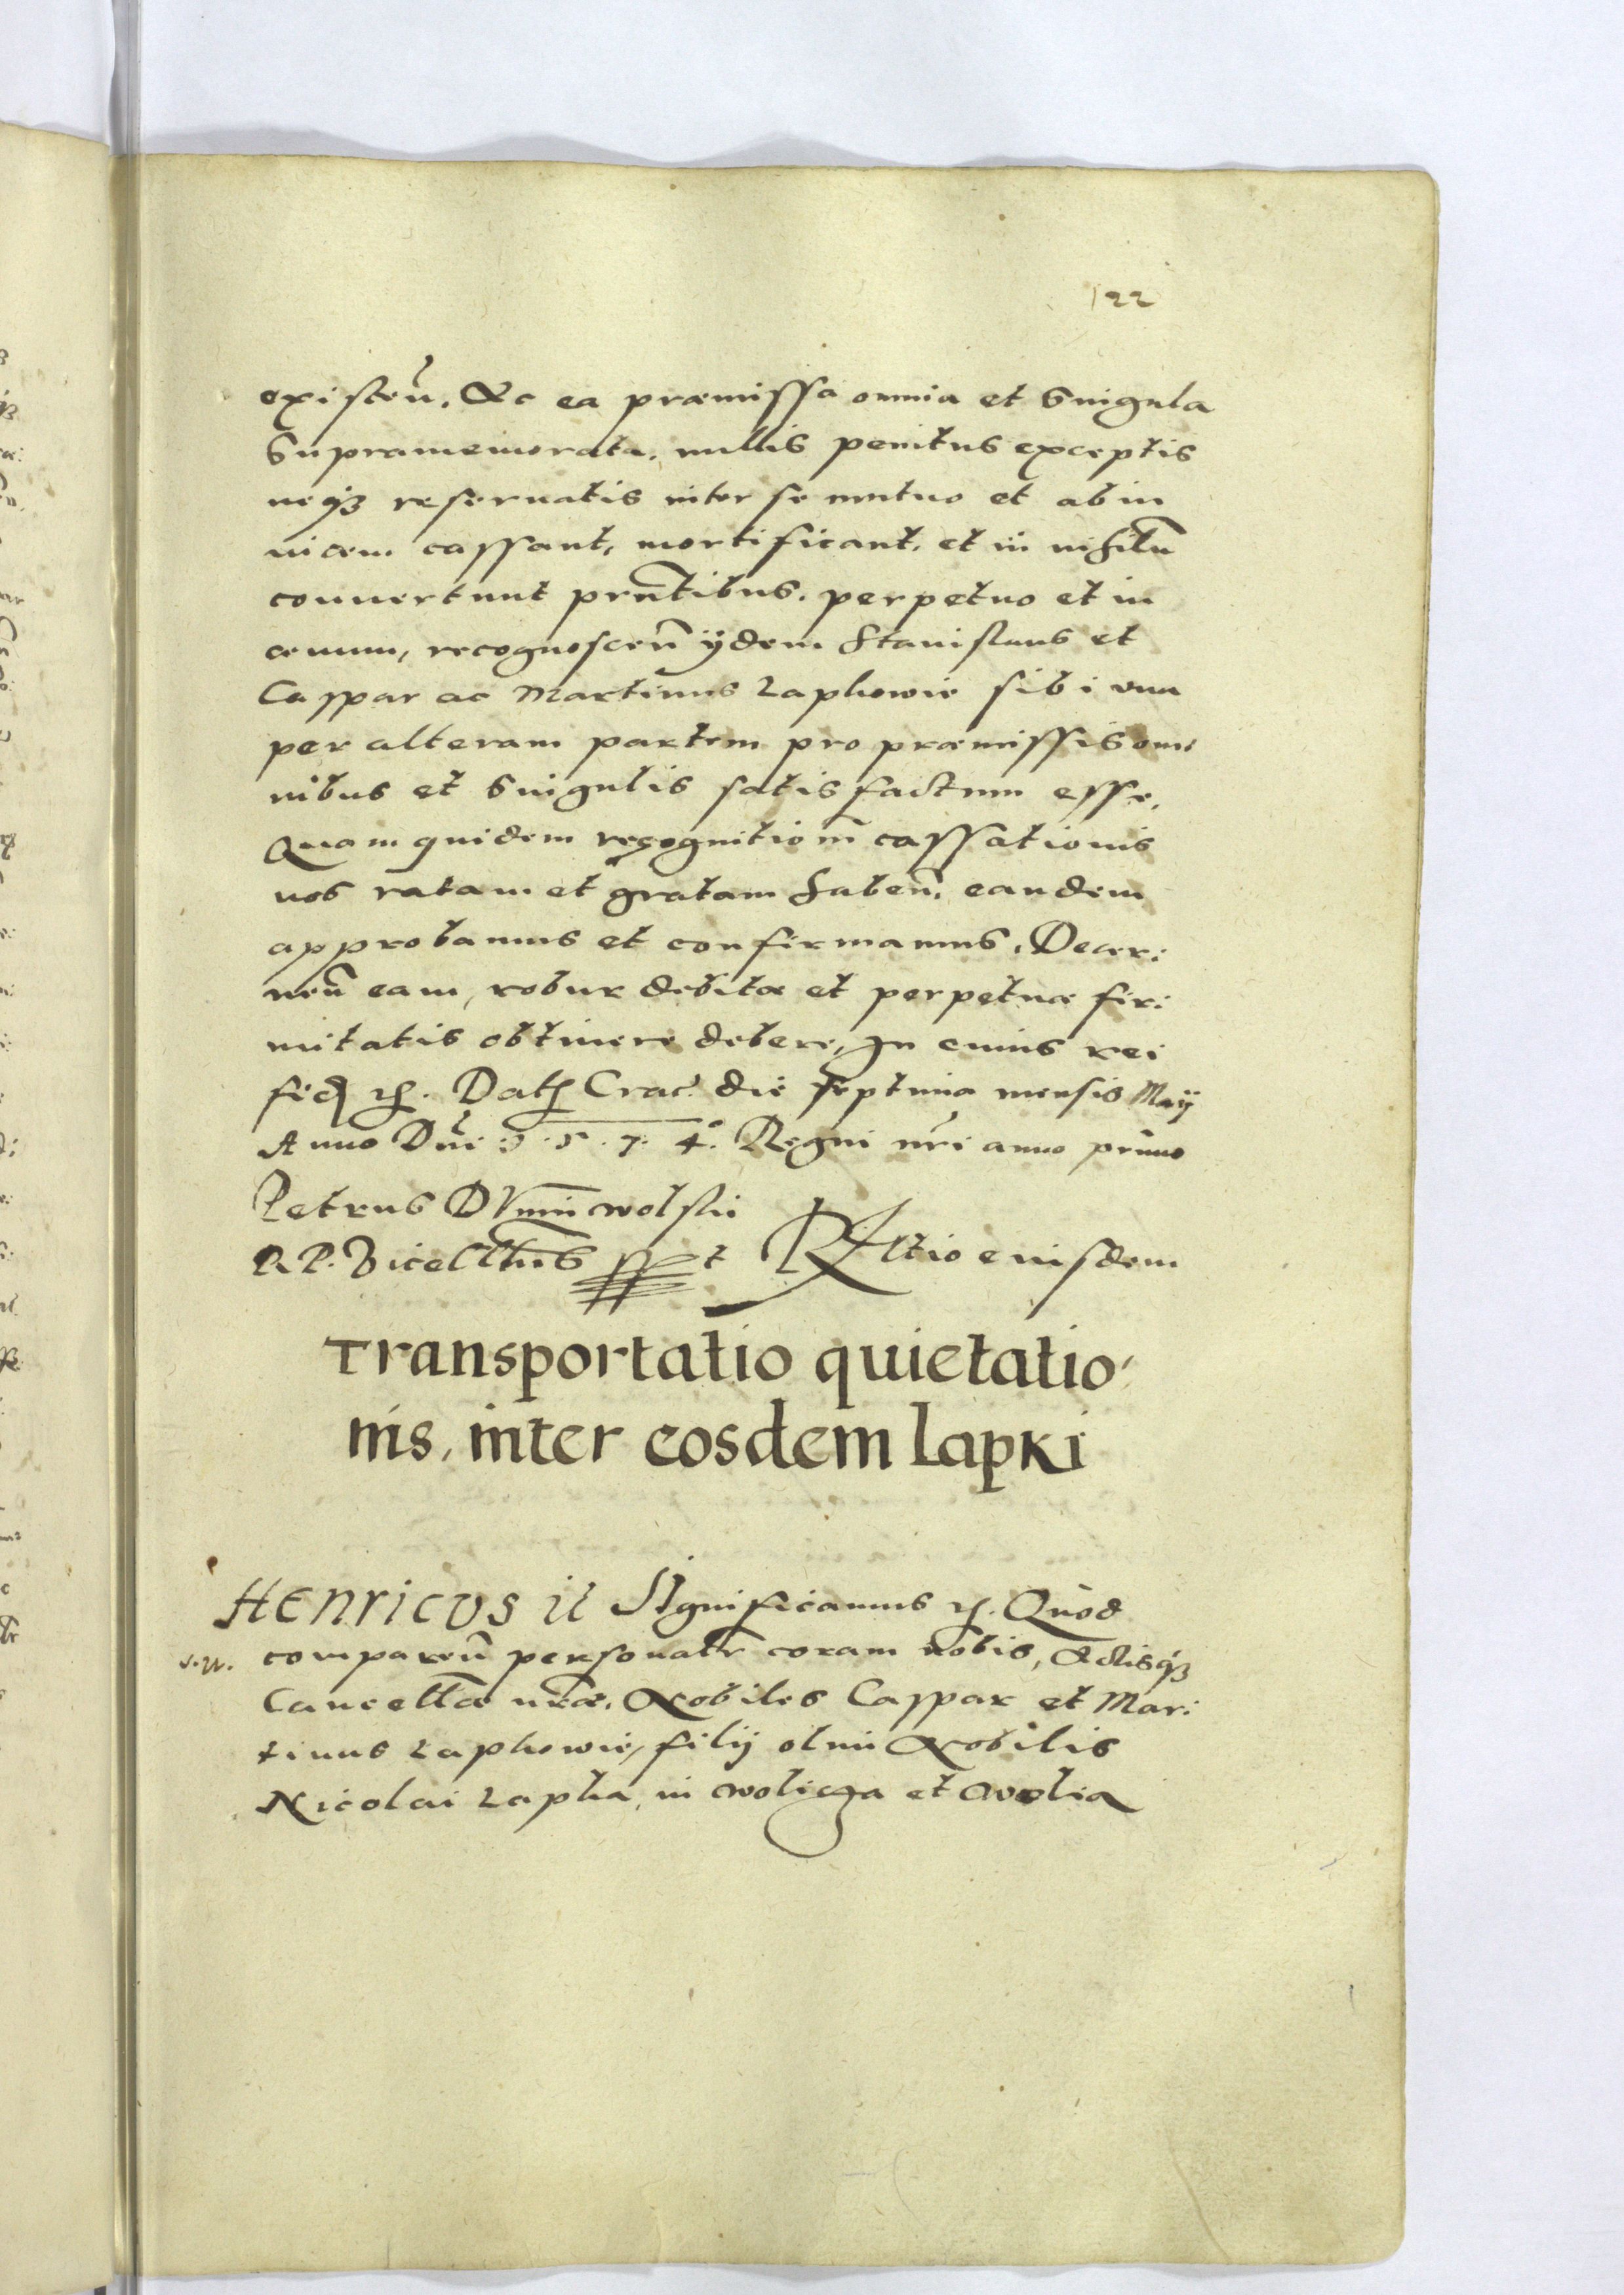 122
existeñ. Ac ea præmissa omnia et singula
supramemorata, nullis penitus exceptis
neqꝫ reseruatis inter se mutuo et ab in
uicem cassant, mortificant, et in nihilũ
conuertunt prñtibus. perpetuo et in
æuum, recognosceñ ijdem Stanislaus et
Caspar ac Martinus Lapkowie sibi vna
per alteram partem pro præmissis om⸗
nibus et singulis satisfactum esse.
Quam quidem recognitionẽ cassationis
nos ratam et gratam habeñ. eandem
approbamus et confirmamus. Decer:
neñ eam, robur debitæ et perpetuæ fir:
mitatis obtinere debere, In cuius rei
fid ꝛc. Dat Crac. die septima mensis Maij
Anno Dñi 1.5.7.4. Regni nr̃i anno primo
Petrus Dunin wolski
R. P. Vicecllrius sspt Rltio eiusdem
Transportatio quietatio⸗
nis, inter eosdem Lapki
Henricus ii Significamus ꝛc. Quòd
compareñ personalr̃ coram nobis, Actisqꝫ
Cancellæ nr̃æ. Nobiles Caspar et Mar:
tinus Lapkowie, filij olim Nobilis
Nicolai Lapka, in Woliça et Wolia